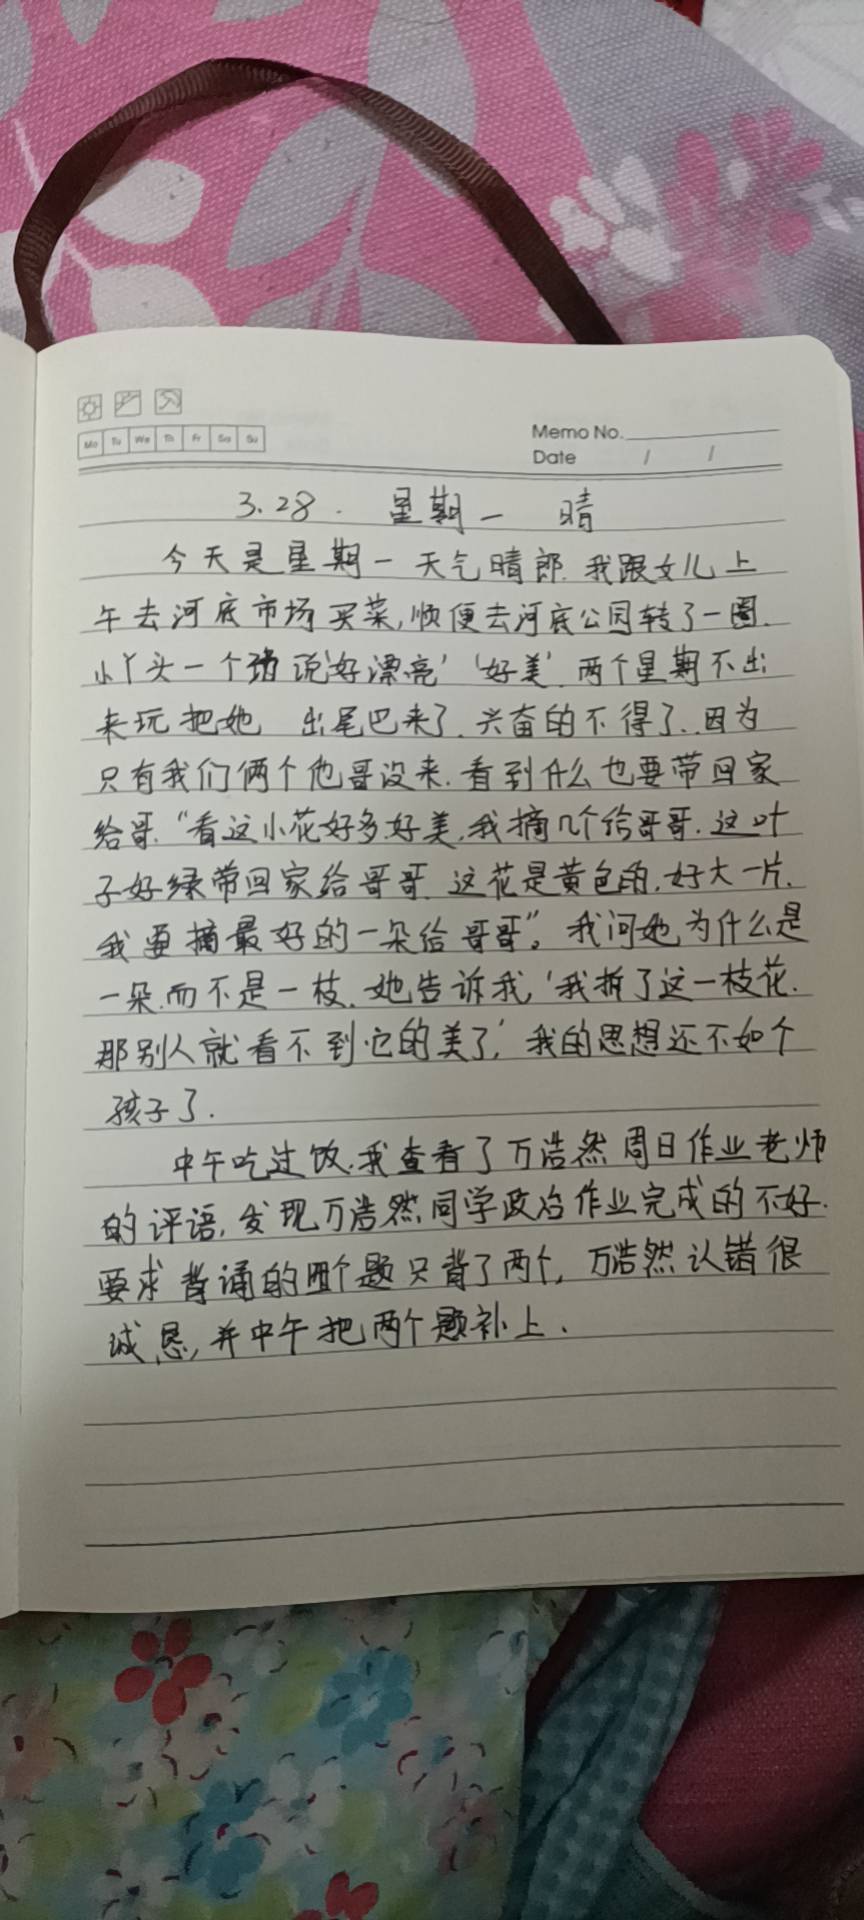 Mo Tu We Th Fr Sa Su
Memo No.
Date / /
3.28. 星期一 晴
今天是星期一天气晴郎.我跟女儿上
午去河底市场买菜,顺便去河底公园转了一圈.
小丫头一个 说'好漂亮' '好美'.两个星期不出
来玩把她 出尾巴来了.兴奋的不得了..因为
只有我们俩个他哥没来.看到什么也要带回家
给哥."看这小花好多好美,我摘几个给哥哥.这叶
子好绿带回家给哥哥.这花是黄色的.好大一片.
我要摘最好的一朵给哥哥"。我问她为什么是
一朵.而不是一枝.她告诉我,'我拆了这一枝花.
那别人就看不到它的美了.'我的思想还不如个
孩子了.
中午吃过饭.我查看了万浩然周日作业老师
的评语,发现万浩然同学政治作业完成的不好.
要求背诵的四个题只背了两个,万浩然认错很
诚恳,并中午把两个题补上.